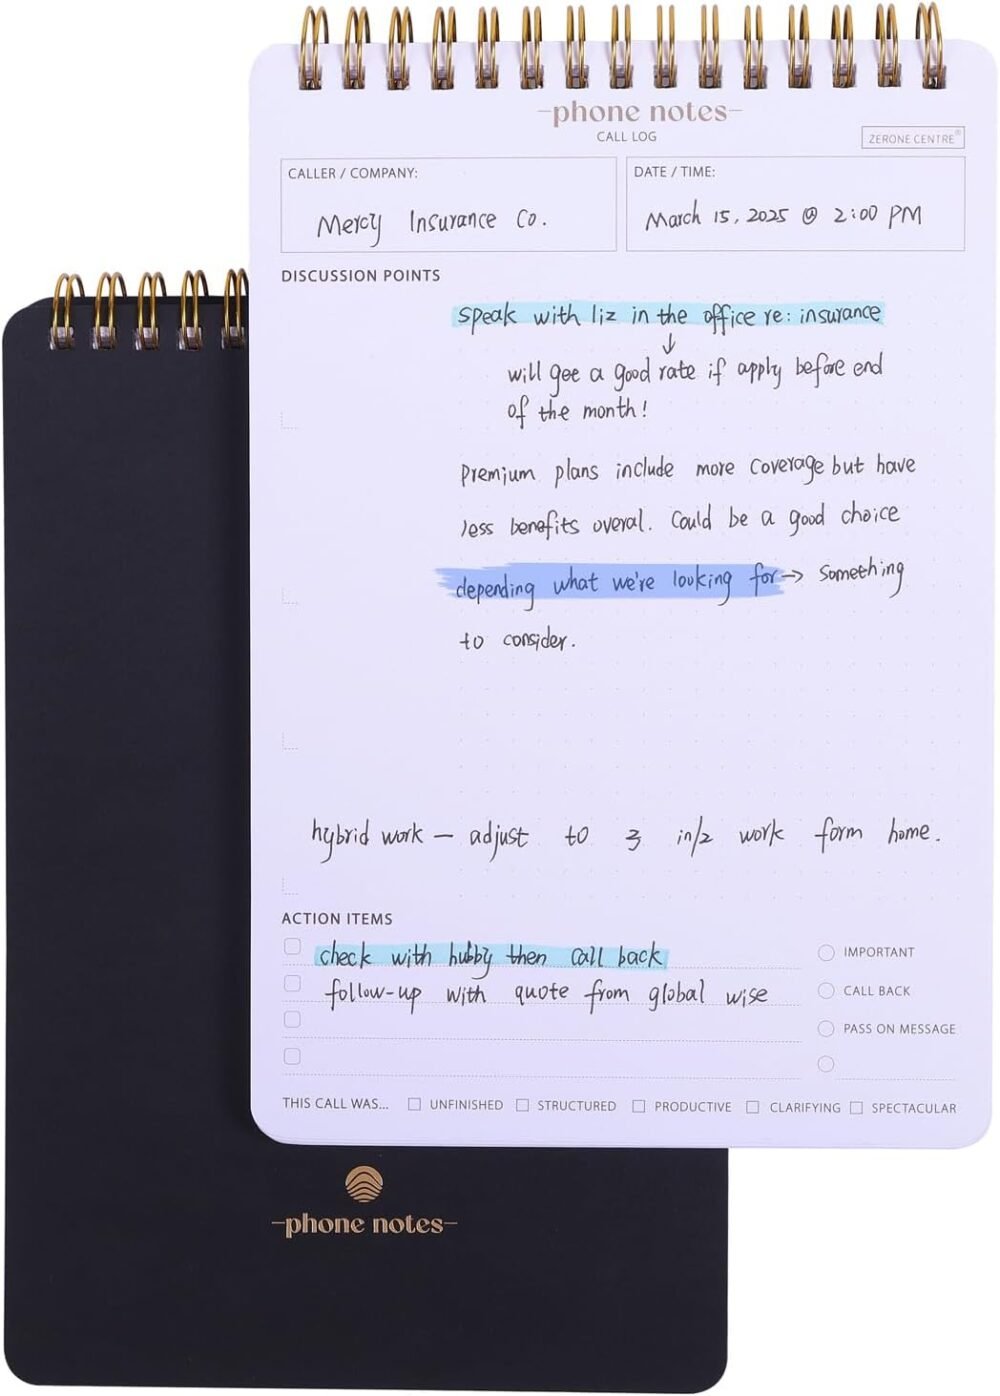 -phone notes-
CALL LOG
ZERONE CENTRE®
CALLER / COMPANY:
Mercy Insurance Co.
DATE / TIME:
March 15, 2025 @ 2:00 PM
DISCUSSION POINTS
speak with liz in the office re: insurance
↓
will gee a good rate if apply before end
of the month!
premium plans include more coverage but have
less benefits overal. Could be a good choice
depending what we're looking for → something
to consider.
hybrid work — adjust to 3 in/2 work form home.
ACTION ITEMS
check with hubby then call back
follow-up with quote from global wise
IMPORTANT
CALL BACK
PASS ON MESSAGE
THIS CALL WAS... UNFINISHED STRUCTURED PRODUCTIVE CLARIFYING SPECTACULAR
-phone notes-